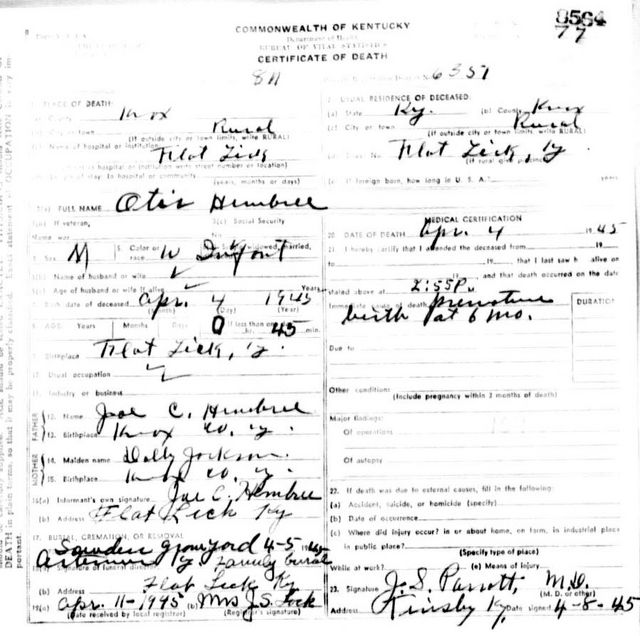 COMMONWEALTH OF KENTUCKY
Department of Health
BUREAU OF VITAL STATISTICS
CERTIFICATE OF DEATH
8564
77
8A
No. 6351
1. PLACE OF DEATH:
(a) County Knox
(b) City or town Rural
(If outside city or town limits, write RURAL)
(c) Name of hospital or institution
Flat Lick
(If not in hospital or institution write street number or location)
(d) Length of stay: In hospital or community
(years, months or days)
2. USUAL RESIDENCE OF DECEASED:
(a) State Ky. (b) County Knox
(c) City or town Rural
(If outside city or town limits, write RURAL)
(d) Street No. Flat Lick, Ky
(If rural give precinct)
(e) If foreign born, how long in U. S. A.? years
3(a) FULL NAME Otis Hembree
3(b) If veteran,
Name war
3(c) Social Security
No.
4. Sex M 5. Color or race W
widowed, married,
Infant
6(b) Name of husband or wife
6(c) Age of husband or wife if alive Years
7. Birth date of deceased Apr. 4 1945
(Month) (Day) (Year)
8. AGE: Years Months Days 0 If less than one day hr. 45 min.
9. Birthplace Flat Lick, Ky.
10. Usual occupation
11. Industry or business
FATHER
12. Name Joe C. Hembree
13. Birthplace Knox Co. Ky.
MOTHER
14. Maiden name Dolly Jackson
15. Birthplace Knox Co. Ky.
16(a) Informant's own signature Joe C. Hembree
(b) Address Flat Lick Ky
17. BURIAL, CREMATION, OR REMOVAL
Sowders graveyard 4-5 1945
Artemus Ky Family burial
18(a) Signature of funeral director
(b) Address Flat Lick Ky
19(a) Apr. 11-1945 (b) Mrs J.S. Lock
(Date received by local registrar) (Registrar's signature)
MEDICAL CERTIFICATION
20. DATE OF DEATH Apr. 4 1945
21. I hereby certify that I attended the deceased from 19
to 19 , that I last saw h alive on
19 , and that death occurred on the date
stated above at 2:55 P.
Immediate cause of death premature
birth at 6 mo.
DURATION
Due to
Other conditions
(Include pregnancy within 3 months of death)
Major findings:
Of operations
Of autopsy
22. If death was due to external causes, fill in the following:
(a) Accident, suicide, or homicide (specify)
(b) Date of occurrence
(c) Where did injury occur? in or about home, on farm, in industrial place
in public place?
(Specify type of place)
While at work? (e) Means of injury
23. Signature J. S. Parrott, M.D.
(M. D. or other)
Address Kinsby Ky Date signed 4-8-45